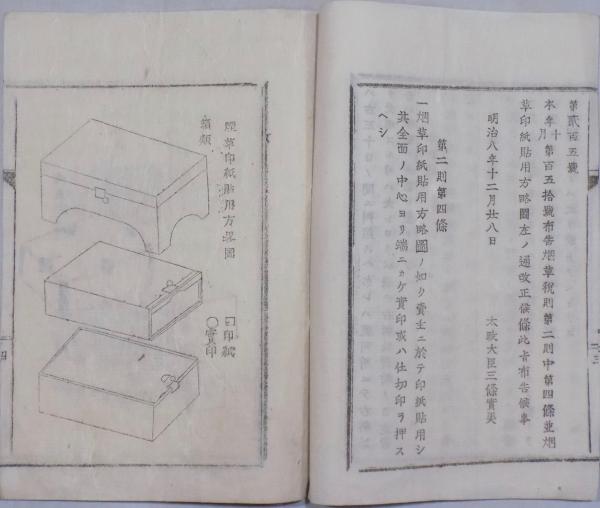 第貳百五號
本年十月第百五拾號布告烟草税則第二則中第四條並烟
草印紙貼用方略圖左ノ通改正候條此旨布告候事
明治八年十二月廿八日
太政大臣三條實美
第二則第四條
一烟草印紙貼用方略圖ノ如ク賣主ニ於テ印紙貼用シ
其全面ノ中心ヨリ端ニカケ實印或ハ仕切印ヲ押ス
ヘシ
烟草印紙貼用方畧圖
箱類
□印紙
○實印